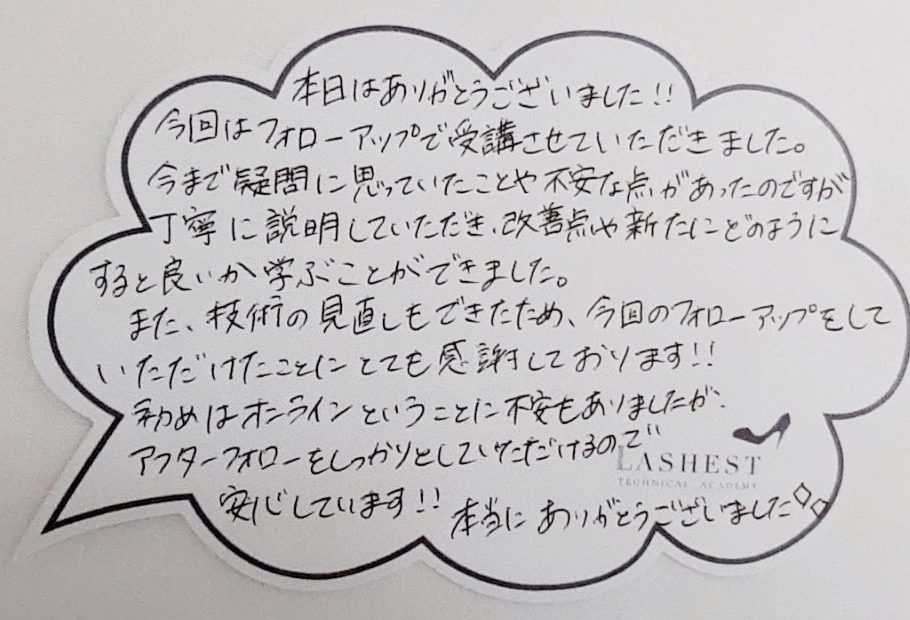 本日はありがとうございました!!
今回はフォローアップで受講させていただきました。
今まで疑問に思っていたことや不安な点があったのですが
丁寧に説明していただき、改善点や新たにどのように
すると良いか学ぶことができました。
また、技術の見直しもできたため、今回のフォローアップをして
いただけたことにとても感謝しております!!
初めはオンラインということに不安もありましたが、
アフターフォローをしっかりとしていただけるので
LASHEST
TECHNICAL ACADEMY
安心しています!!
本当にありがとうございました◇◇